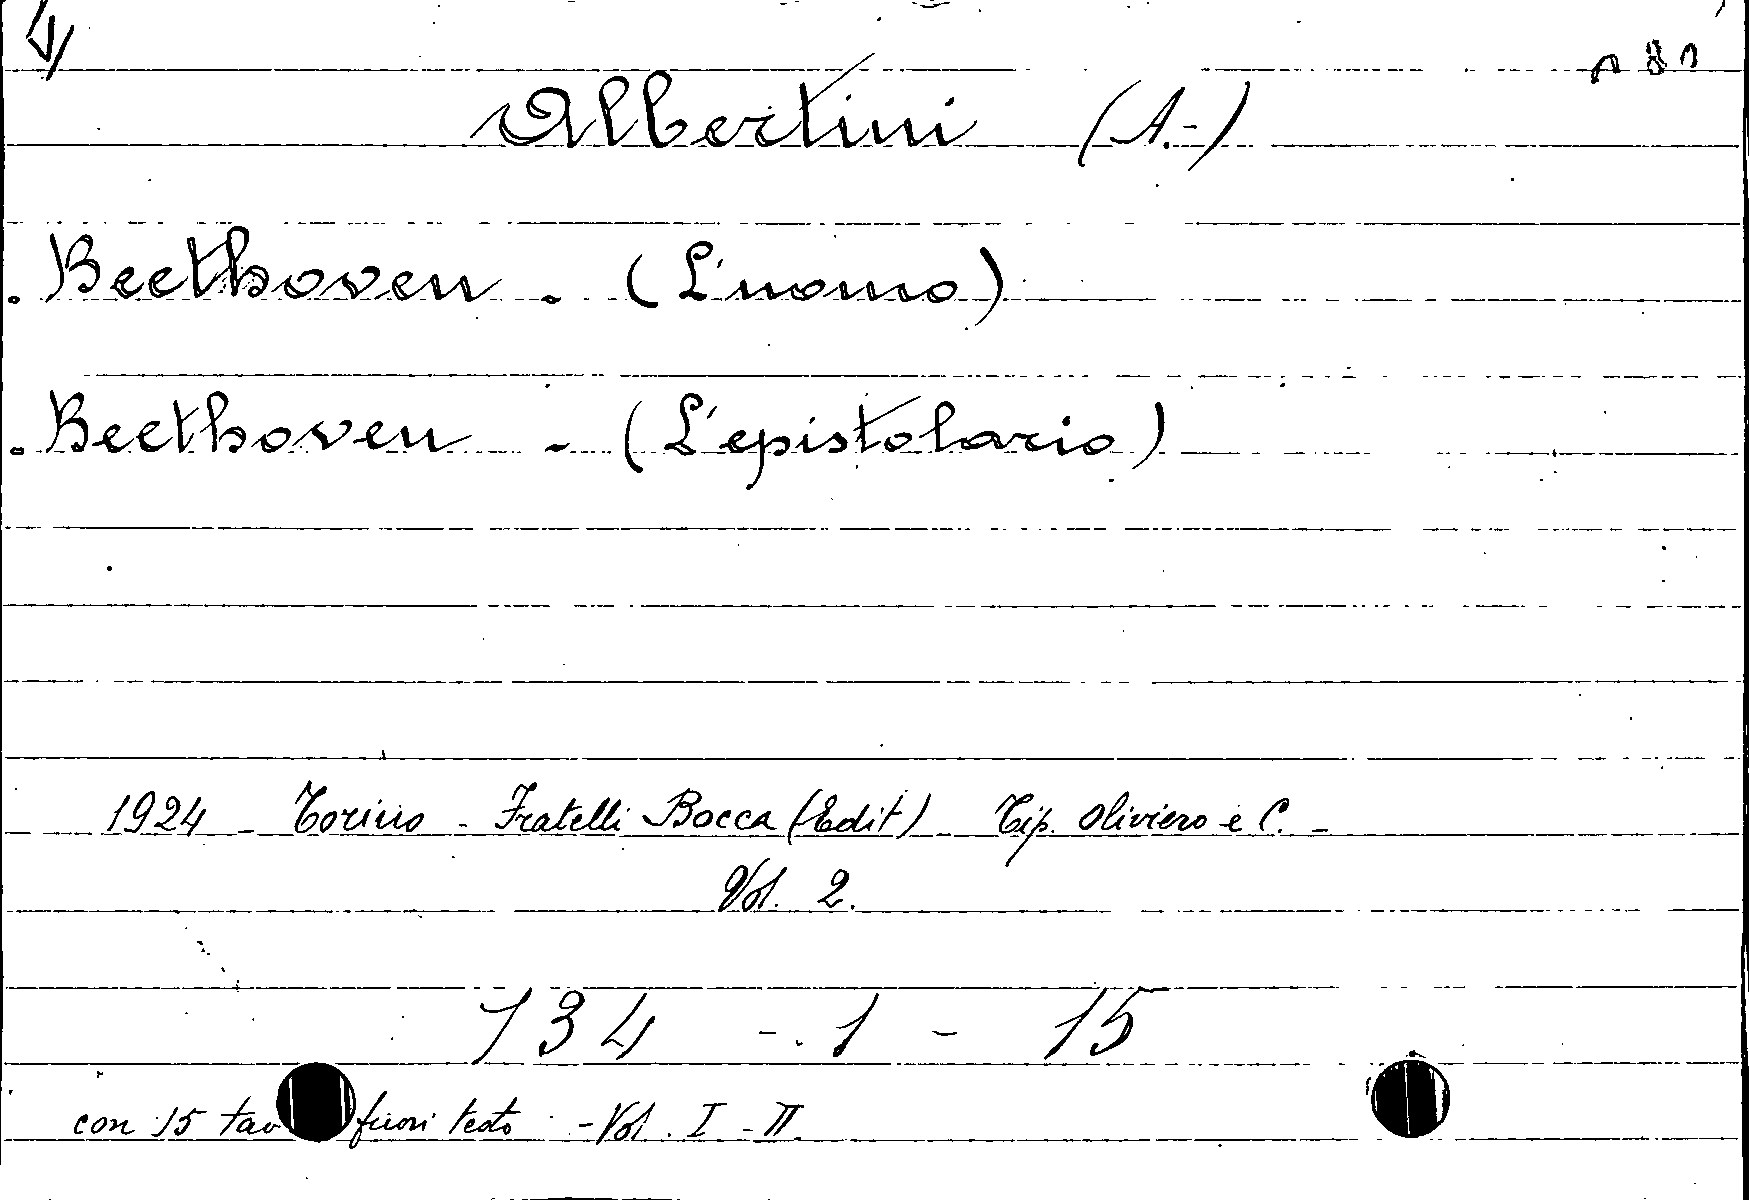 Albertini (A.-)
. Beethoven . (L'uomo)
. Beethoven - (L'epistolario)
1924 - Torino - Fratelli Bocca (Edit) - Tip. Oliviero e C. -
Vol. 2.
134 - 1 - 15
con 15 tav fuori testo - Vol. I - II.